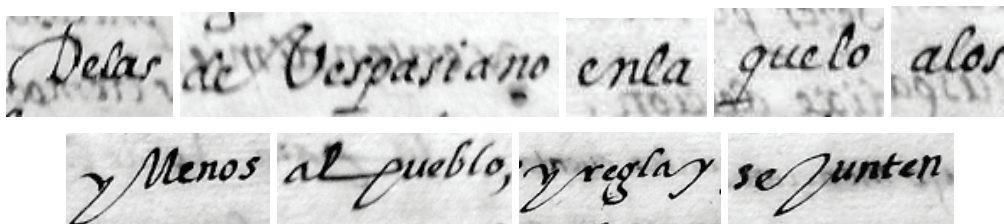 Delas de Vespasiano enla quelo alos
y Menos al pueblo, y regla y se Junten